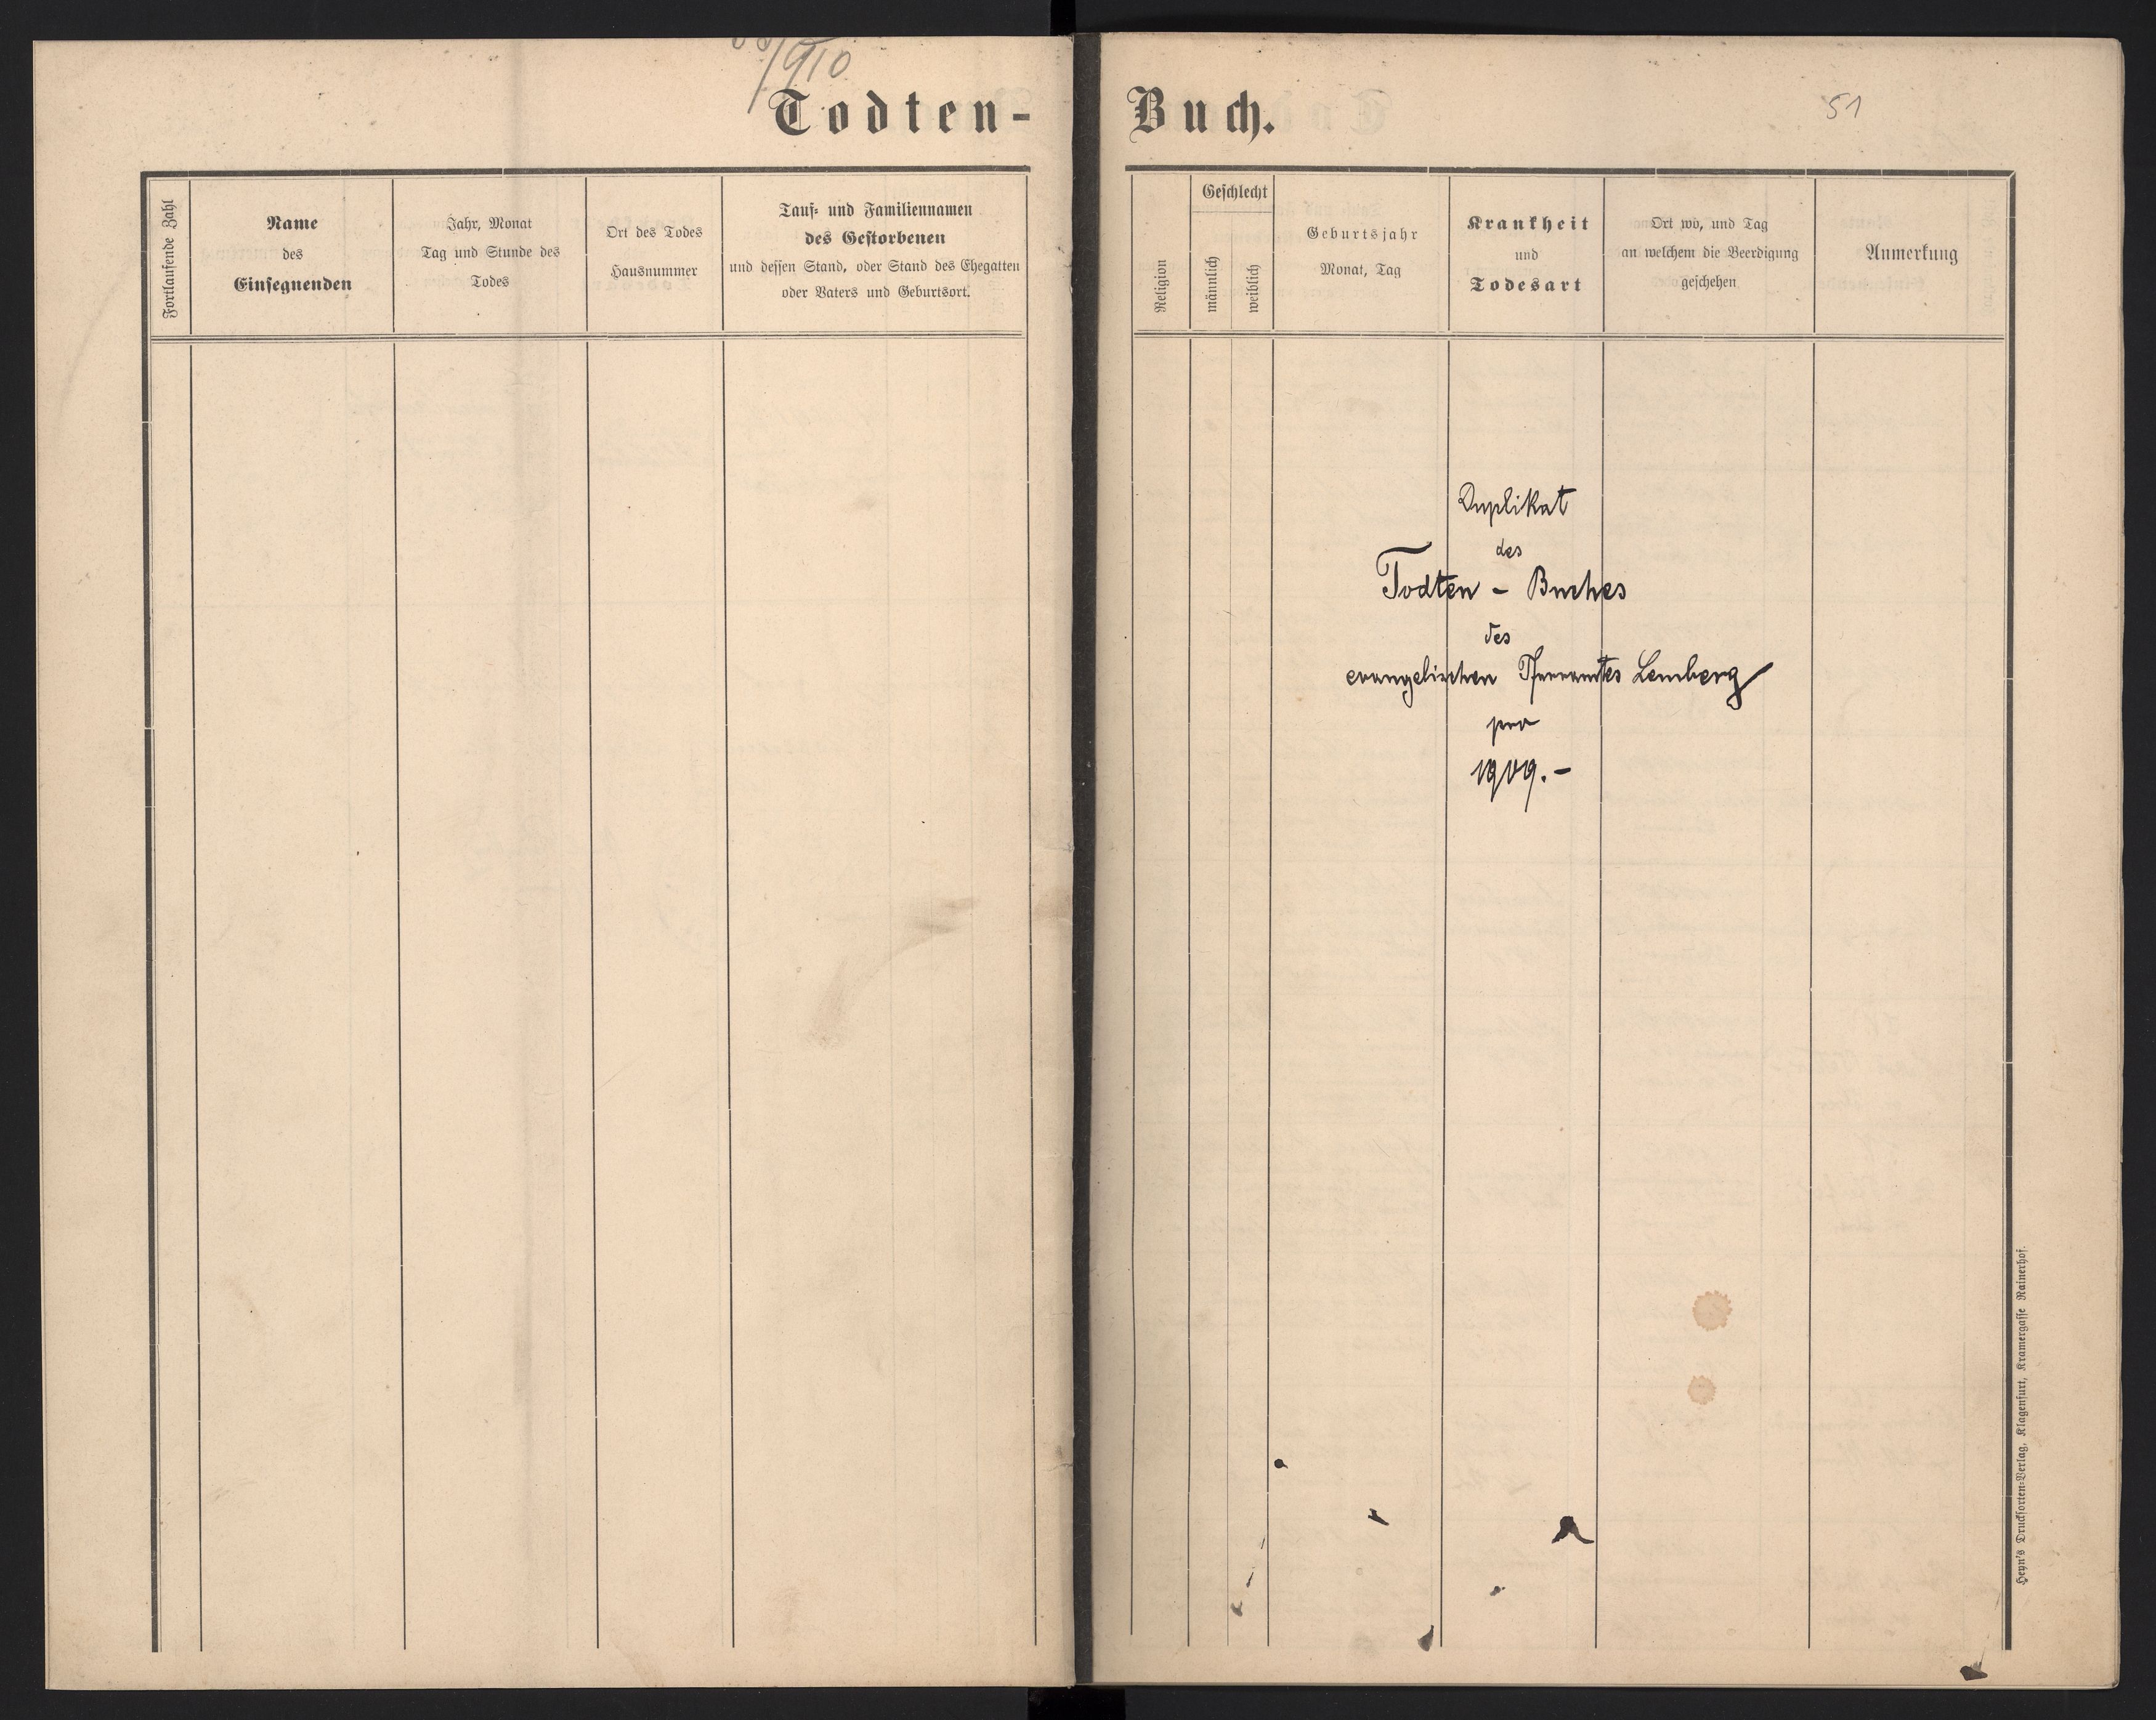 /910
Todten-
Fortlaufende Zahl
Name
des
Einsegnenden
Jahr, Monat
Tag und Stunde des
Todes
Ort des Todes
Hausnummer
Tauf- und Familiennamen
des Gestorbenen
und dessen Stand, oder Stand des Ehegatten
oder Vaters und Geburtsort.
Buch.
51
Religion
Geschlecht
männlich
weiblich
Geburtsjahr
Monat, Tag
Krankheit
und
Todesart
Ort wo, und Tag
an welchem die Beerdigung
geschehen
Anmerkung
Duplikat
des
Todten - Buches
des
evangelischen Pfarramtes Lemberg
pro
1909.-
Heyn's Drucksorten-Verlag, Klagenfurt, Kramergasse Rainerhof.